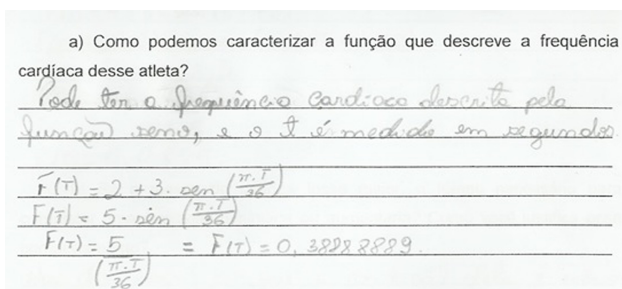 a) Como podemos caracterizar a função que descreve a frequência
cardíaca desse atleta?
Pode ter a frequência cardíaca descrita pela
função seno, e o t é medido em segundos
F(T) = 2 + 3. sen (π.T/36)
F(T) = 5. sen (π.T/36)
F(T) = 5 = F(T) = 0,38888889.
(π.T/36)